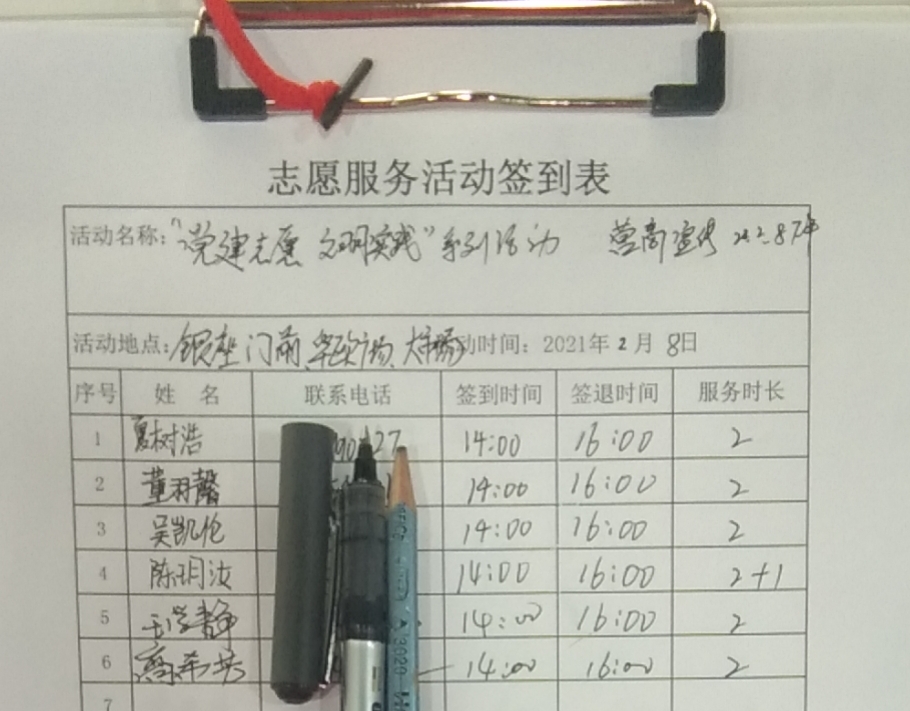 志愿服务活动签到表
活动名称:“党建志愿 文明实践”系列活动 营商宣传
活动地点:银座门前、 动时间:2021年2月8日
序号 姓名 联系电话 签到时间 签退时间 服务时长
1 夏树浩 14:00 16:00 2
2 董羽馨 14:00 16:00 2
3 吴凯伦 14:00 16:00 2
4 陈玥汝 14:00 16:00 2+1
5 王学静 14:00 16:00 2
6 14:00 16:00 2
7
3020